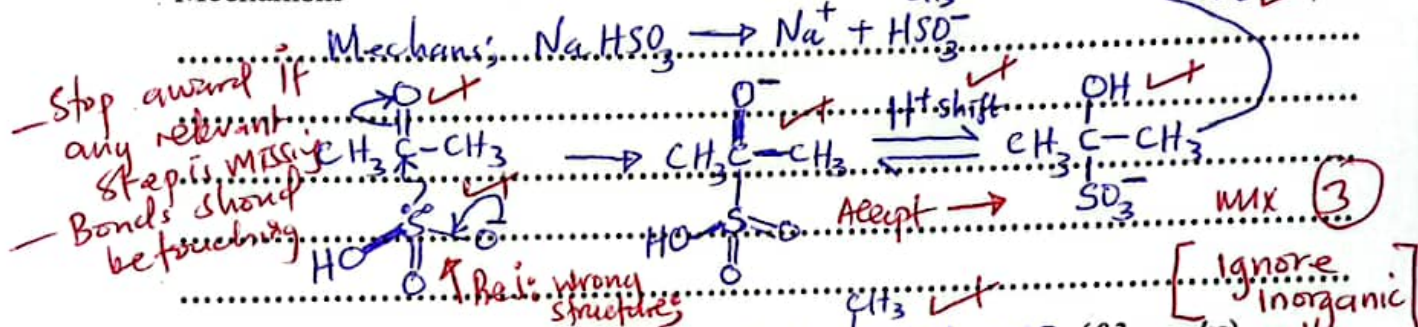 Mechans; NaHSO₃ → Na⁺ + HSO₃⁻
– Stop award if any relevant step is missig
– Bonds shoud be touching
O
CH₃ C–CH₃
S
HO O
O
→
O⁻
CH₃ C–CH₃
S
HO O
O
H⁺ shift
⇌
OH
CH₃ C–CH₃
SO₃⁻
Accept →
3
Rej: wrong structures
CH₃
[Ignore inorganic]